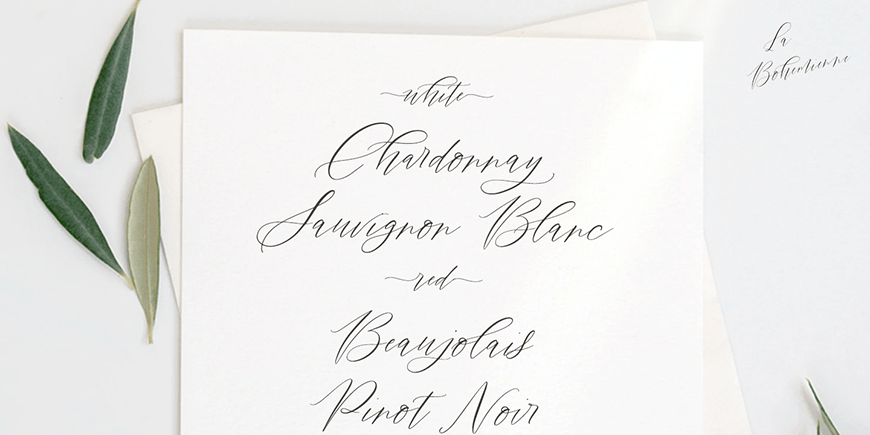 white
Chardonnay
Sauvignon Blanc
red
Beaujolais
Pinot Noir
La
Bohemienne